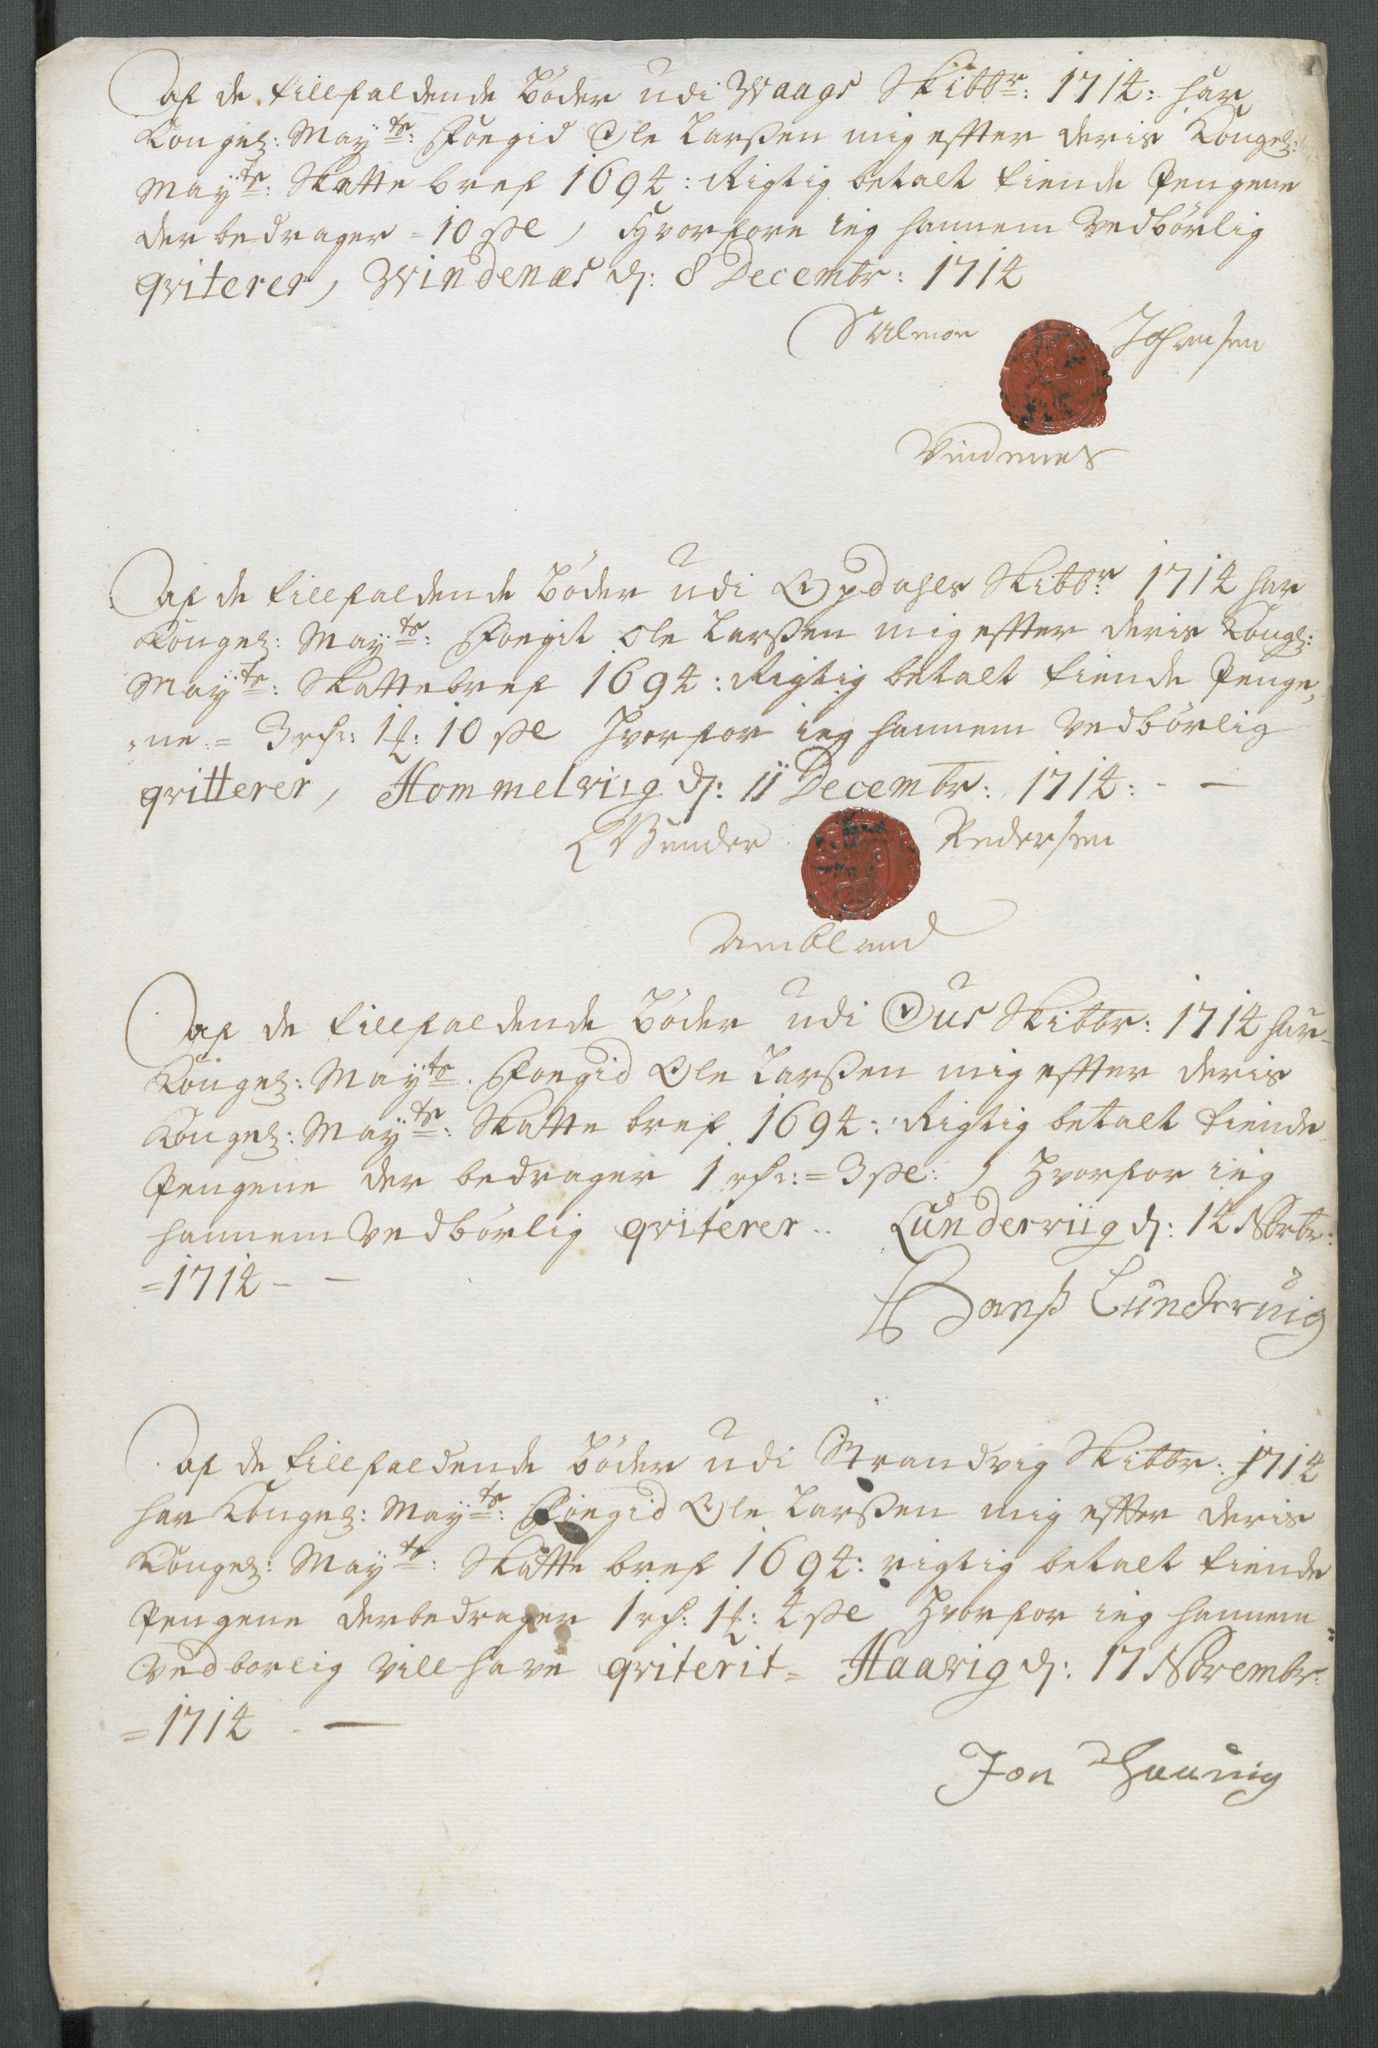 Af de tillfaldende Bøder udi Waags Skibbr: 1714: har
Kongel: Mayts: Foegid Ole Larßen mig effter deris Kongel:
Mayts: Skatte bref 1694: Rigtig betalt tiende Pengene
der bedrager = 10 sl, Hvorfore ieg hannem Vedbörlig
qviterer, Windenæs d: 8 Decembr: 1714
Salmon Johansen
Vindenes
Af de tillfaldende Bøder udi Opdahls Skibbr: 1714 har
Kongel: Mayts: Foegit Ole Larßen mig effter deris Kongl:
Mayts: Skattebref 1694: Rigtig betalt tiende Penge,
,ne = 3 rdr: 1 : 10 sl Hvorfor ieg hannem Vedbörlig
qvitterer, Hommelviig d: 11 Decembr: 1714: - -
Pedersen
Amblund
Af de tillfaldende Bøder udi Ous Skibbr: 1714 har
Kongel: Mayts. Foegid Ole Larßen mig effter deris
Kongel: Mayts: Skatte bref 1694: Rigtig betalt tiende
Pengene der bedrager 1 rdr: = 3 sl: , Hvorfor ieg
hannem Vedbörlig qviterer.. Lunderviig d: 14 Novbr:
=1714 - -
Hanß Lundervig
Af de tillfaldende Bøder udi Strandvig Skibbr: 1714
har Kongel: Mayts: Foegid Ole Larßen mig effter deris
Kongel: Mayts: Skatte bref 1694: rigtig betalt tiende
Pengene der bedrager 1 rd: 1 : 4 sl Hvorfor ieg hannem
Vedborlig vill have qviterit = Haavig d: 17 Novembr:
=1714 - —
Jon Haavig